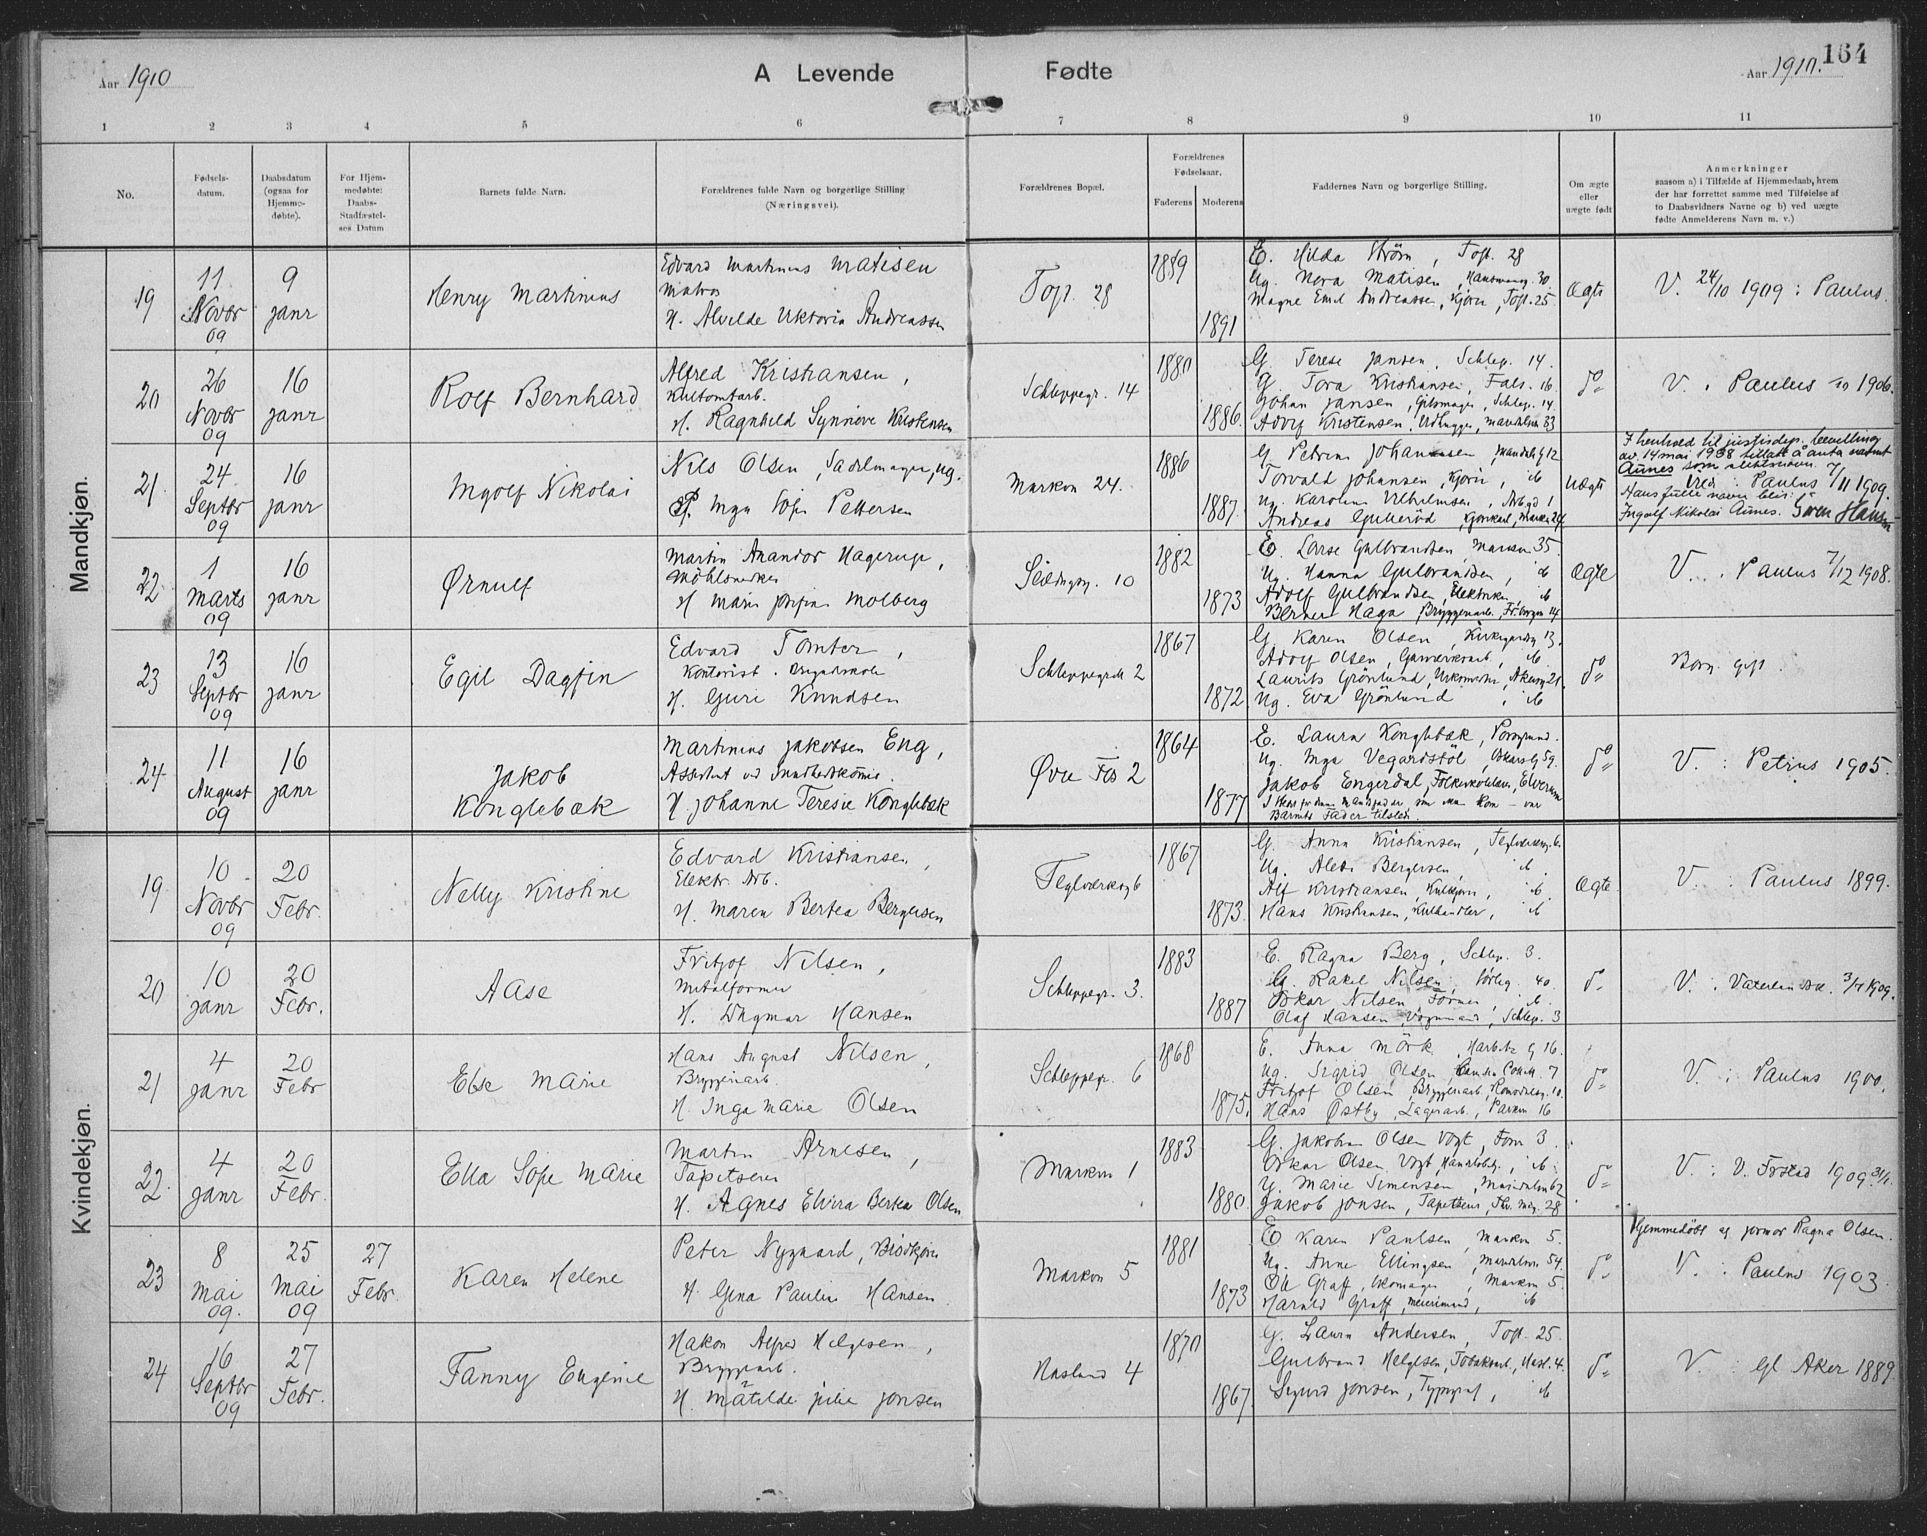 Aar 1910
A Levende Fødte
Aar 1910.
164
1 2 3 4 5 6 7 8 9 10 11
No.
Fødsels-
datum.
Daabsdatum
(ogsaa for
Hjemme-
døbte).
For Hjem-
medøbte:
Daabs-
Stadfæstel-
ses Datum
Barnets fulde Navn.
Forældrenes fulde Navn og borgerlige Stilling
(Næringsvei).
Forældrenes Bopæl.
Forældrenes
Fødselsaar.
Faderens Moderens
Faddernes Navn og borgerlige Stilling.
Om ægte
eller
uægte født
Anmerkninger
saasom a) i Tilfælde af Hjemmedaab, hvem
der har forrettet samme med Tilføielse af
to Daabsvidners Navne og b) ved uægte
fødte Anmelderens Navn m. v.)
Mandkjøn.
19
11
Novbr
09
9
janr
Henry Martinius
Edvard Martinius Matisen
Matros
H. Alvilde Viktoria Andreassen
Toft. 28
1889
1891
E. Hilda Strøm, Toft. 28
Ug. Nora Matisen, 30
Magne Emil Andreasse, Kjører, Toft. 25
Ægte
V. 24/10 1909 : Paulus.
20
26
Novbr
09
16
janr
Rolf Bernhard
Alfred Kristiansen,
H. Ragnhild Synnøve Kristensen
Schleppegr. 14
1880
1886.
G. Terese Jansen, Schlep. 14.
G. Tora Kristiansen, Fals. 16.
Johan Jansen, Schlep. 14.
Adolf Kristensen, 33
do
V. : Paulus 1906.
21.
24
Septbr
09
16
janr
Ingolf Nikolai
Nils Olsen, Sadelmager, ug.
P. Inga Sofie Pettersen
Markvn 24.
1886
1887.
G. Petrine Johannesen, Mandalsg 12
Torvald Johansen, Kjører, ib
Ug. Karoline Vilhelmsen, Arbgd 1
Andreas Gulleröd, Markvn 24
Uægte
I henhold til justisdep. bevilling
av 14 mai 1938 tillatt å anta navnet
Aunes som slektsnavn.
V. : Paulus 7/11 1909.
Hans fulle navn blir:
Ingolf Nikolai Aunes. Hansen
22.
1
Marts
09
16
janr
Ørnulf
Martin Anandor Hagerup,
Möbelsnedker
H. Marie Josefine Molberg
10
1882
1873
E. Lovise Gulbrandsen Markvn 35.
Ug. Hanna Gulbrandsen, ib
Adolf Gulbrandsen, Elektriker, ib
Berner Haga, Bryggeriarb. 14
Ægte
V. : Paulus 7/12 1908.
23
13
Septbr
09
16
janr
Egil Dagfin
Edvard Tomter,
Kontorist.
H. Guri Knudsen
Schleppegrdt 2
1867
1872
G. Karen Olsen, Kirkegardsg 13.
Adolf Olsen, Gasværksarb, ib.
Laurits Grönlund,
Ug. Eva Grönlund, ib
do
Borg. gift.
24
11
August
09
16
janr
Jakob
Konglebæk
Martinius Jakobsen Eng,
Assistent ved Sundhedskomis.
H. Johanne Teresie Konglebæk
Øvre Fos 2
1864
1877
E. Laura Konglebæk, Porsgrund.
Ug. Inga Vegardstöl, Oskarsg 59.
Jakob Engerdal, Elverum
Barnets Fader tilstede.
do
V. : Petrus 1905.
Kvindekjøn.
19
10
Novbr
09
20
Febr.
Nelly Kristine
Edvard Kristiansen,
Elektr. Arb.
H. Maren Bertea Bergersen
Teglværksg 6
1867
1873.
G. Anna Kristiansen, Teglværksg. 6.
Ug. Aleti Bergersen, ib.
Alf Kristiansen, ib.
Hans Kristiansen, Kulhandler, ib
Ægte.
V. : Paulus 1899.
20
10
janr
20
Febr.
Aase
Fritjof Nilsen,
Metalformer
H. Dagmar Hansen
Schleppegr. 3.
1883
1887
E. Ragna Berg, Schlep. 3.
G. Rakel Nilsen, Sörlig. 40.
Oskar Nilsen, Former, ib.
Olaf Hansen, Vognmand, Schlep. 3
do
V. : 1909.
21
4
janr
20
Febr
Else Marie
Hans August Nilsen,
Bryggeriarb.
H. Inga Marie Olsen
Schleppegr. 6
1868
1875.
E. Anna Mörk, 16.
Ug. Sigrid Olsen, 7
Fritjof Olsen, Bryggeriarb, 10.
Hans Østby, Lagerarb., Parkvn 16
do
V. : Paulus 1900.
22.
4
janr
20
Febr.
Ella Sofie Marie
Martin Arnesen,
Tapetserer
H. Agnes Elvira Bertea Olsen
Markvn 1
1883
1880.
G. Jakobine Olsen Vogt, 3.
Oskar Olsen Vogt, ib.
G. Marie Simensen, 62
Jakob Jonsen, Tapetserer, 28
do
V. : V. 1909.
23
8
Mai
09.
25
Mai
09
27
Febr.
Karen Helene
Peter Nygaard,
H. Gina Pauline Hansen.
Markvn 5
1881
1873
E Karen Paulsen, Markvn 5.
Ug. Anne Ellingsen, 54.
Ole Graff, Skomager, Markvn 5.
Harald Graff, Meierimand, ib
do
Hjemmedöbt af jormor Ragna Olsen.
V. : Paulus 1903.
24
16
Septbr
09
27
Febr.
Fanny Eugenie
Hakon Alfred Helgesen,
Bryggeriarb.
H. Matilde Julie Jonsen
Haslund 4
1870
1867.
G. Laura Andersen, Toft. 25.
Gulbrand Helgesen, Tobakarb, Hasl. 4.
Sigurd Jonsen, Typograf, ib
do
V. : Gl Aker 1889.